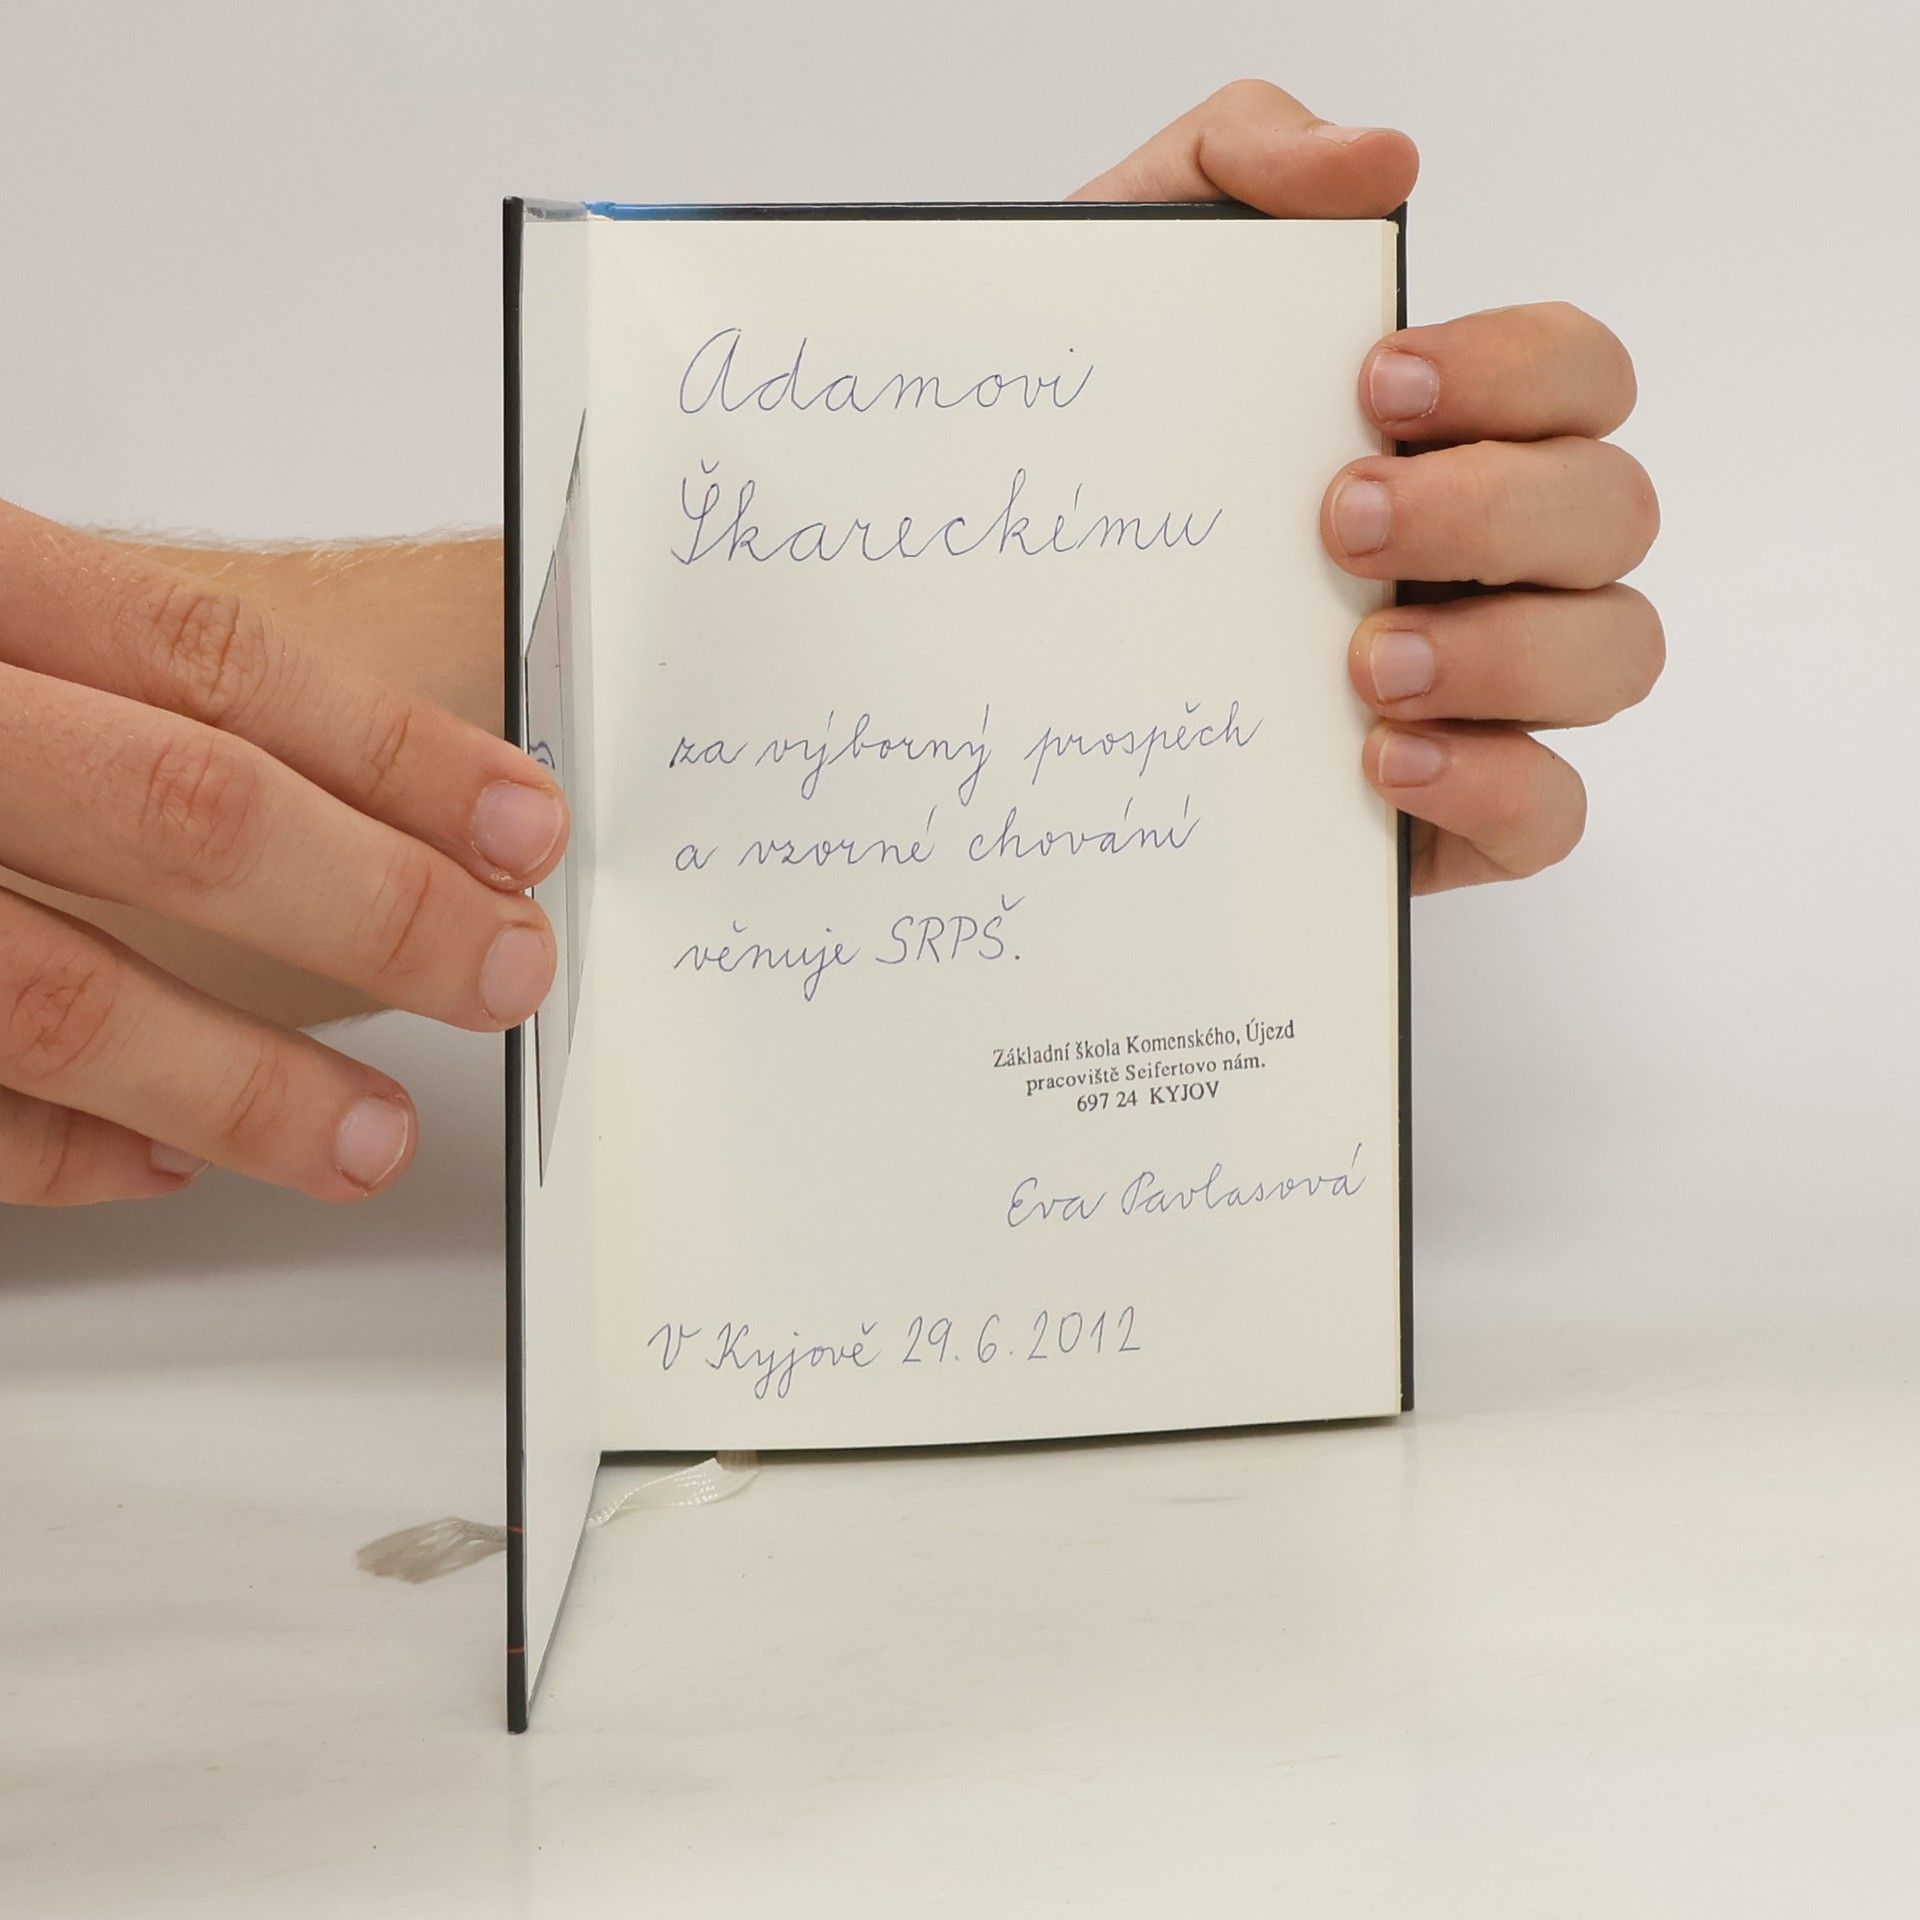 Adamovi
Škareckému
za výborný prospěch
a vzorné chování
věnuje SRPŠ.
Základní škola Komenského, Újezd
pracoviště Seifertovo nám.
697 24 KYJOV
Eva Pavlasová
V Kyjově 29. 6. 2012